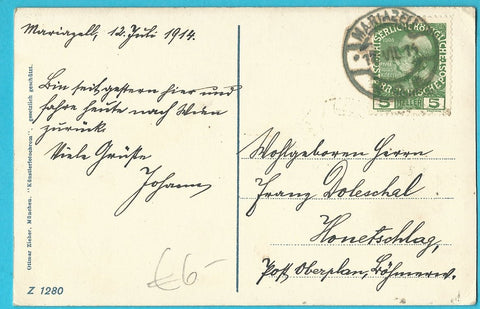 Mariazell, 12. Juli 1914.
Bin seit gestern hier und
fahre heute nach Wien
zurück.
Viele Grüße
Johann
Wohlgeboren Herrn
Franz Doleschal
Honetschlag,
Post Oberplan, Böhmerw.
MARIAZELL
5 HELLER 5
Ottmar Zieher, München. "Künstlerlichtdruck" gesetzlich geschützt.
€6-
Z 1280